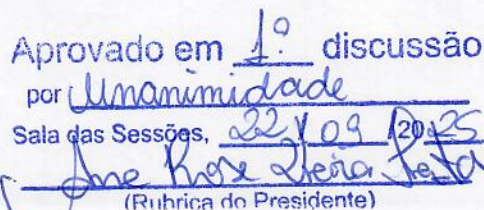 Aprovado em 1ª discussão
por Unanimidade
Sala das Sessões, 22 / 09 /2025
Ane Rose
(Rubrica do Presidente)